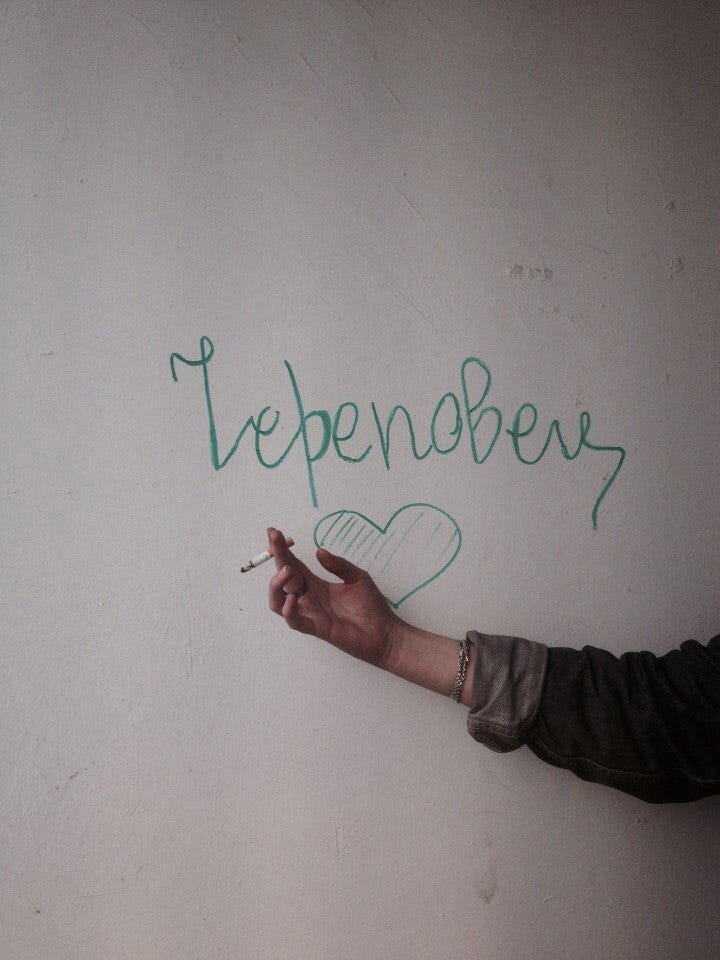 Череповец